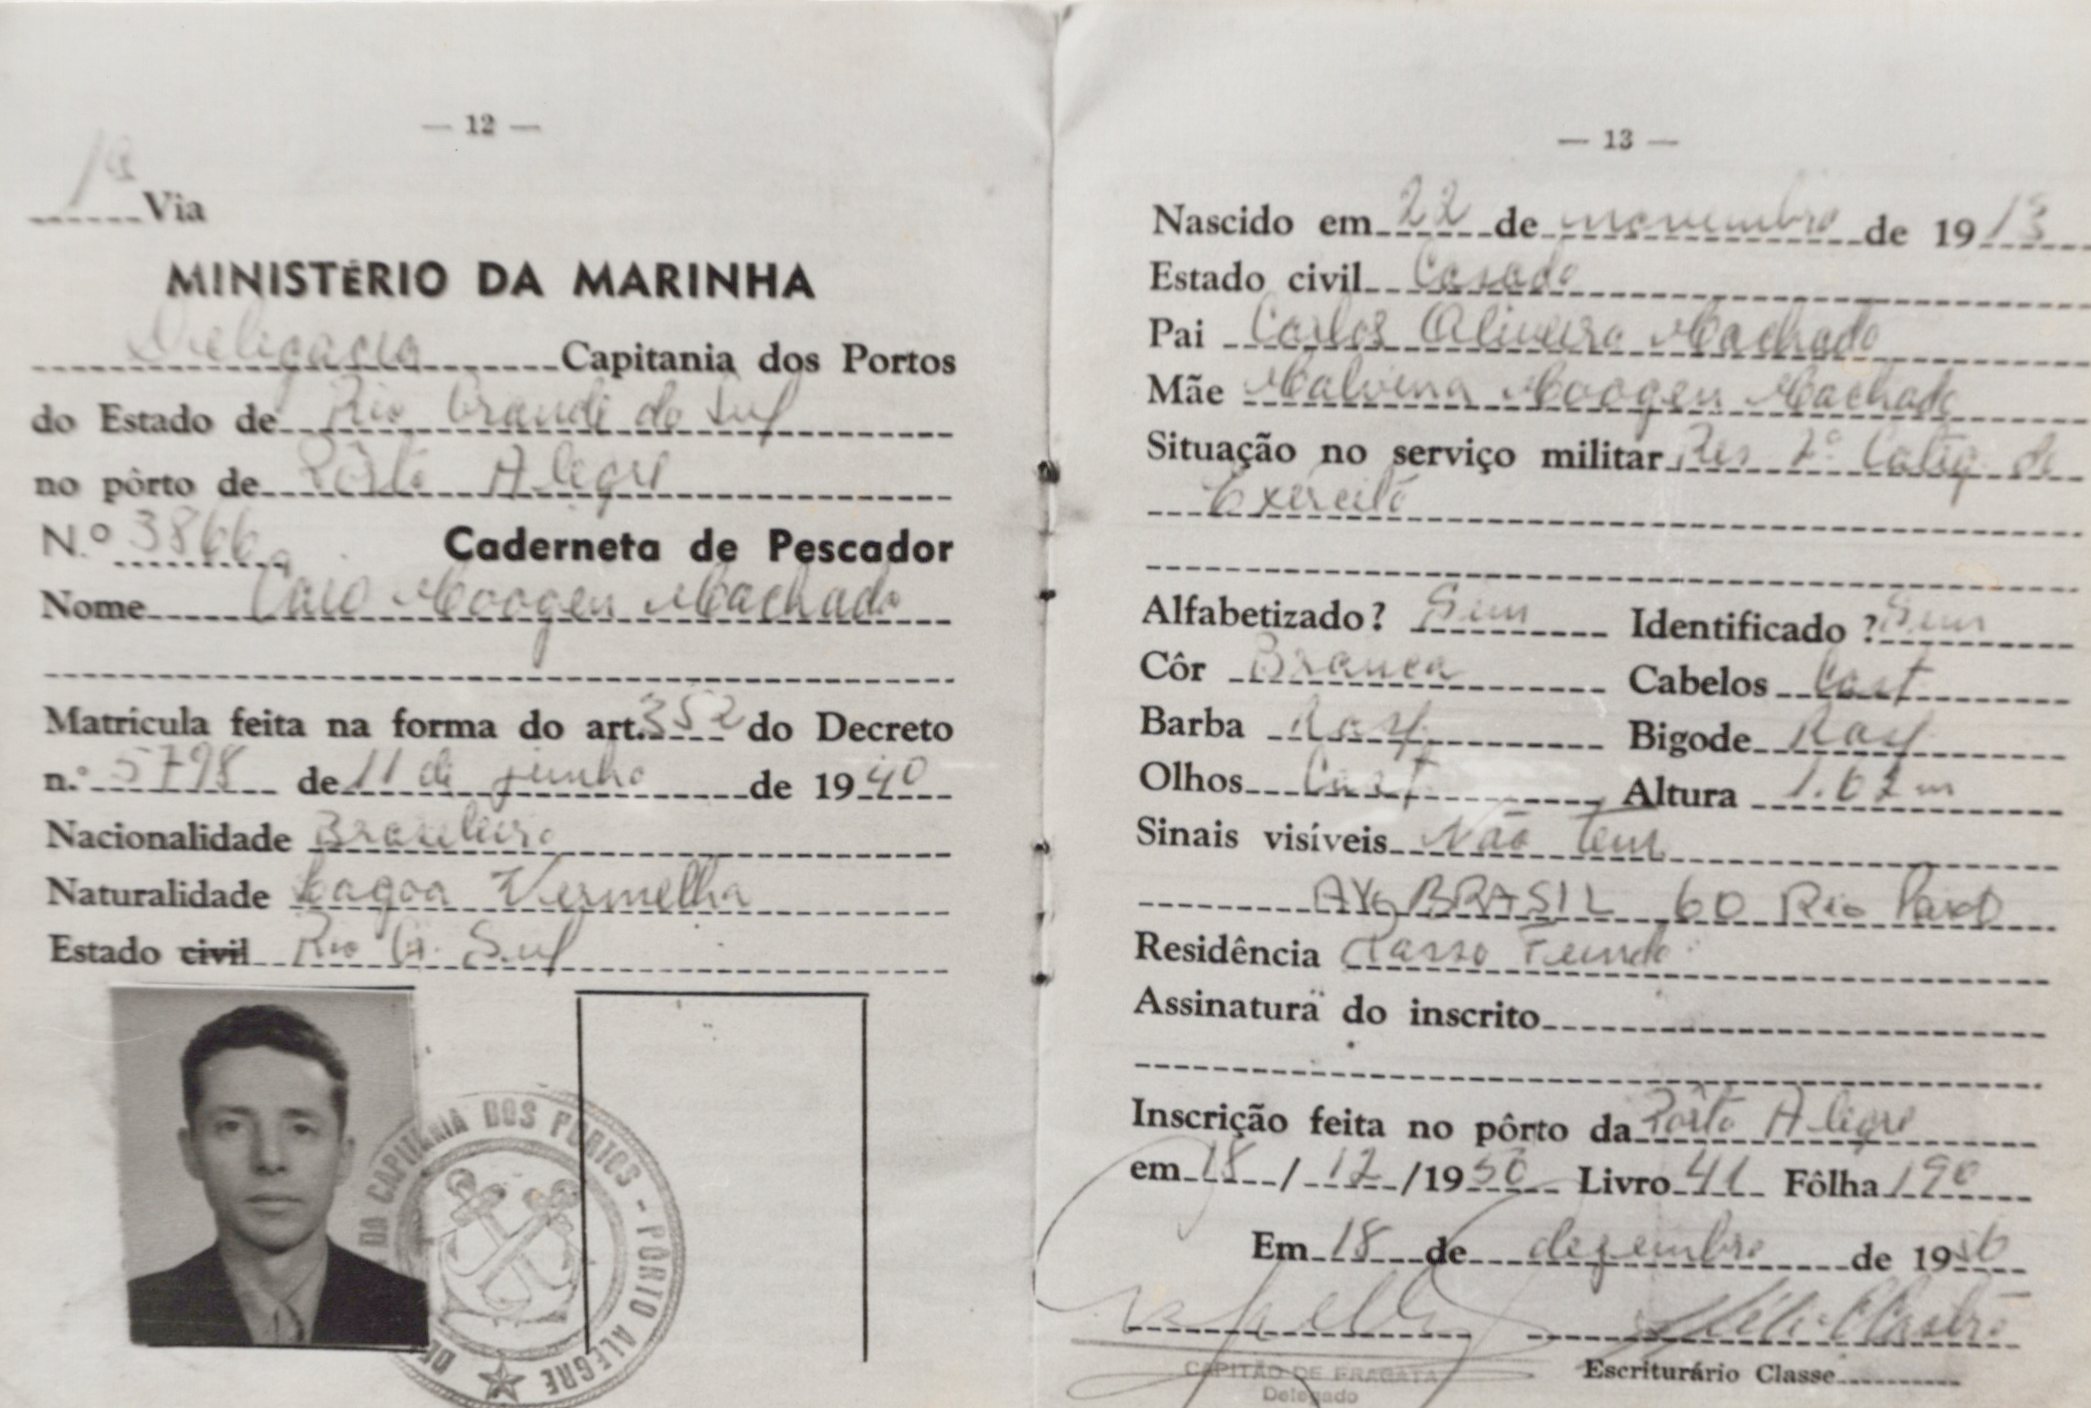 — 12 —
1ª Via
MINISTÉRIO DA MARINHA
Delegacia Capitania dos Portos
do Estado de Rio Grande do Sul
no pôrto de Pôrto Alegre
N.º 3866
Caderneta de Pescador
Nome Caio Moogen Machado
Matrícula feita na forma do art. 352 do Decreto
n.º 5798 de 11 de junho de 1940
Nacionalidade Brasileiro
Naturalidade Lagoa Vermelha
Estado civil Rio G. Sul
DELEGACIA DA CAPITANIA DOS PORTOS - PÔRTO ALEGRE
— 13 —
Nascido em 22 de novembro de 1913
Estado civil Casado
Pai Carlos Oliveira Machado
Mãe Malvina Moogen Machado
Situação no serviço militar Res 2ª Categ. do
Exército
Alfabetizado? Sim Identificado? Sim
Côr Branca Cabelos Cast
Barba Rasp. Bigode Rasp.
Olhos Cast. Altura 1.62 m
Sinais visíveis Não tem
AV. BRASIL 60 Rio Pardo
Residência Passo Fundo
Assinatura do inscrito
Inscrição feita no pôrto da Pôrto Alegre
em 18/12/1956 Livro 41 Fôlha 190
Em 18 de dezembro de 1956
CAPITÃO DE FRAGATA
Delegado
Escriturário Classe